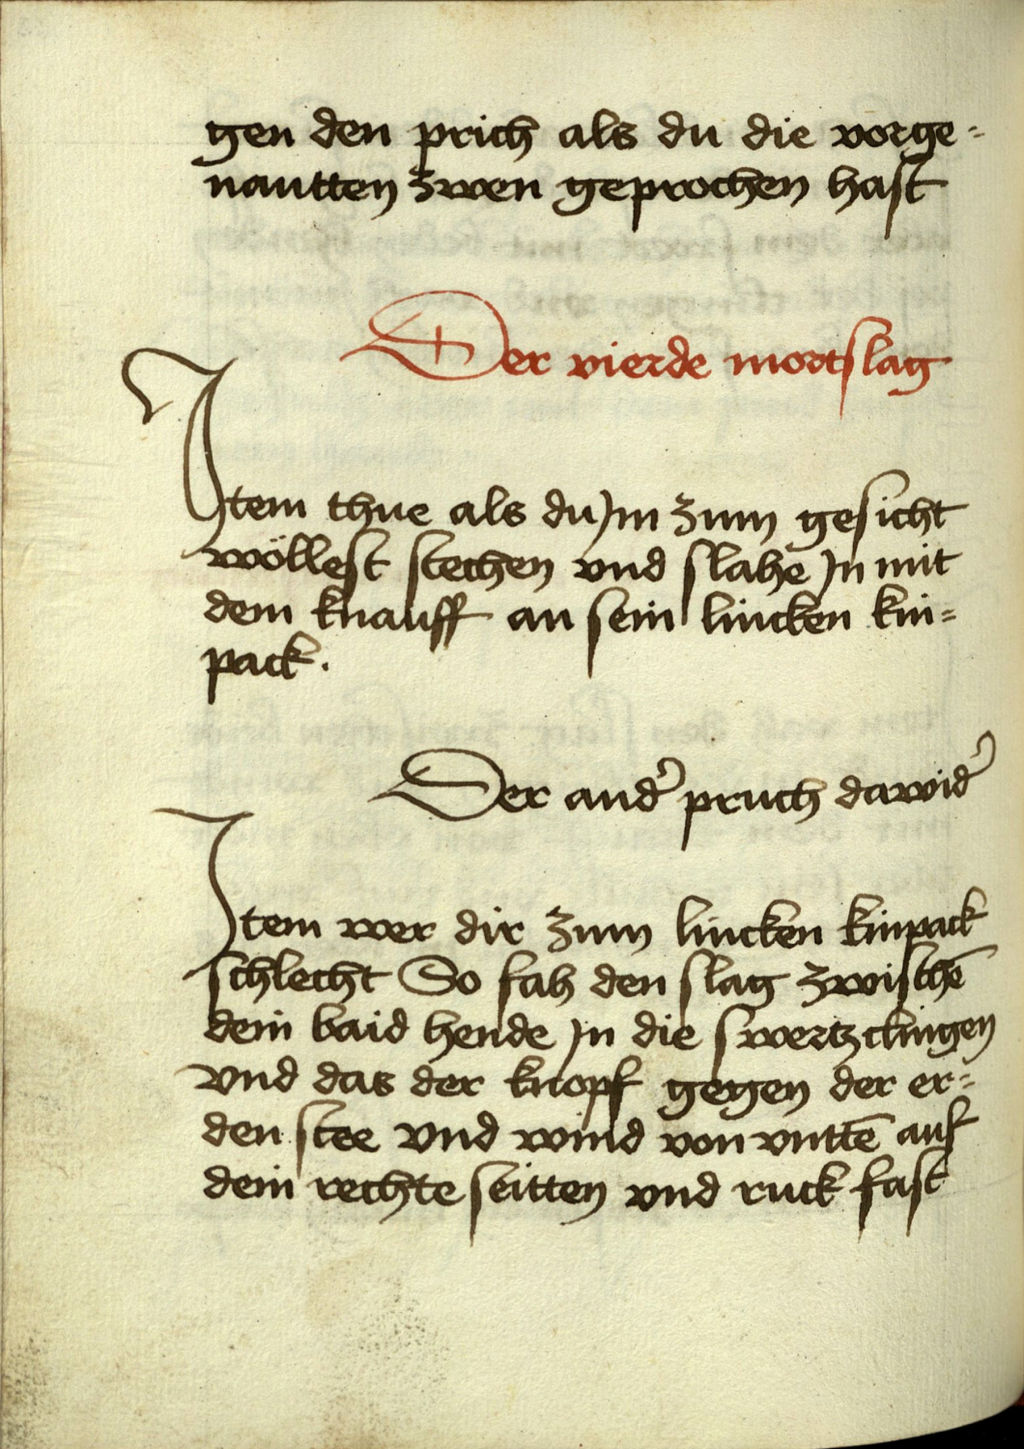 gen den prich als du die vorge-
nantten zwen geprochen hast
Der vierde mortslag
Item thue als du jn zum gesicht
wöllest stechen vnd slahe jn mit
dem knauff an sein lincken kin-
pack.
Der and̛ pruch dawid̛
Item wer dir zum lincken kinpack
schlecht So fah den slag zwischē
dein baid hende jn die swertzclingen
vnd das der knopf gegen der er-
den stee vnd wind von vnttē auf
dein rechte seitten vnd ruck fast